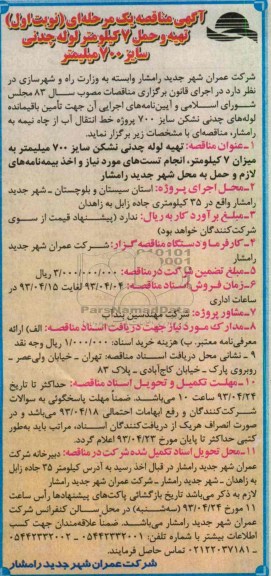 آگهی مناقصه یک مرحله‌ای (نوبت اول)
تهیه و حمل ۷ کیلومتر لوله چدنی
سایز ۷۰۰ میلیمتر
شرکت عمران شهر جدید رامشار وابسته به وزارت راه و شهرسازی در
نظر دارد در اجرای قانون برگزاری مناقصات مصوب سال ۸۳ مجلس
شورای اسلامی و آیین‌نامه‌های اجرایی آن جهت تأمین باقیمانده
لوله‌های چدنی نشکن سایز ۷۰۰ پروژه خط انتقال آب از چاه نیمه به
رامشار، مناقصه‌ای با مشخصات زیر برگزار نماید.
۱-عنوان مناقصه: تهیه لوله چدنی نشکن سایز ۷۰۰ میلیمتر به
میزان ۷ کیلومتر، انجام تست‌های مورد نیاز و اخذ بیمه‌نامه‌های
لازم و حمل به محل شهر جدید رامشار
۲-محل اجرای پروژه: استان سیستان و بلوچستان - شهر جدید
رامشار واقع در ۳۵ کیلومتری جاده زابل به زاهدان
۳-مبلغ برآورد کار به ریال: ندارد (پیشنهاد قیمت از سوی
شرکت‌کنندگان خواهد بود)
۴-کارفرما و دستگاه مناقصه گزار: شرکت عمران شهر جدید
رامشار
۵-مبلغ تضمین شرکت در مناقصه: ۳/۰۰۰/۰۰۰/۰۰۰ ریال
۶-زمان فروش اسناد مناقصه: ۹۳/۰۴/۰۴ لغایت ۹۳/۰۴/۱۵ در
ساعات اداری
۷-مشاور پروژه: شرکت مهندسین
۸-مدارک مورد نیاز جهت دریافت اسناد مناقصه: الف) ارائه
معرفی‌نامه معتبر. ب) هزینه خرید اسناد: ۱/۰۰۰/۰۰۰ ریال وجه نقد
۹-نشانی محل دریافت اسناد مناقصه: تهران - خیابان ولی‌عصر -
روبروی پارک - خیابان کاج‌آبادی - پلاک ۸۳
۱۰-مهلت تکمیل و تحویل اسناد مناقصه: حداکثر تا تاریخ
۹۳/۰۴/۲۴ ساعت ۱۰ می‌باشد. ضمناً مهلت پاسخگوئی به سوالات
شرکت‌کنندگان و رفع ابهامات احتمالی ۹۳/۰۴/۱۸ می‌باشد و در
صورت انصراف هریک از دریافت‌کنندگان اسناد، مراتب باید به‌طور
کتبی حداکثر تا پایان مورخ ۹۳/۰۴/۲۳ اعلام گردد.
۱۱-محل تحویل اسناد تکمیل شده شرکت در مناقصه: دبیرخانه شرکت
عمران شهر جدید رامشار در قبال اخذ رسید به آدرس کیلومتر ۳۵ جاده زابل
به زاهدان - شهر جدید رامشار - شرکت عمران شهر جدید رامشار
لازم به ذکر می‌باشد تاریخ بازگشائی پاکت‌های پیشنهادها رأس ساعت
۱۱ مورخ ۹۳/۰۴/۲۴ (سه‌شنبه) در محل سالن کنفرانس شرکت
عمران شهر جدید رامشار می‌باشد. ضمناً علاقمندان جهت کسب
اطلاعات بیشتر با شماره تلفن: ۰۵۴۴۲۳۳۲۰۰۱ - ۰۵۴۴۲۳۳۲۰۰۲
- ۰۲۱۲۲۰۳۷۱۸۱ تماس حاصل فرمایند.
شرکت عمران شهر جدید رامشار